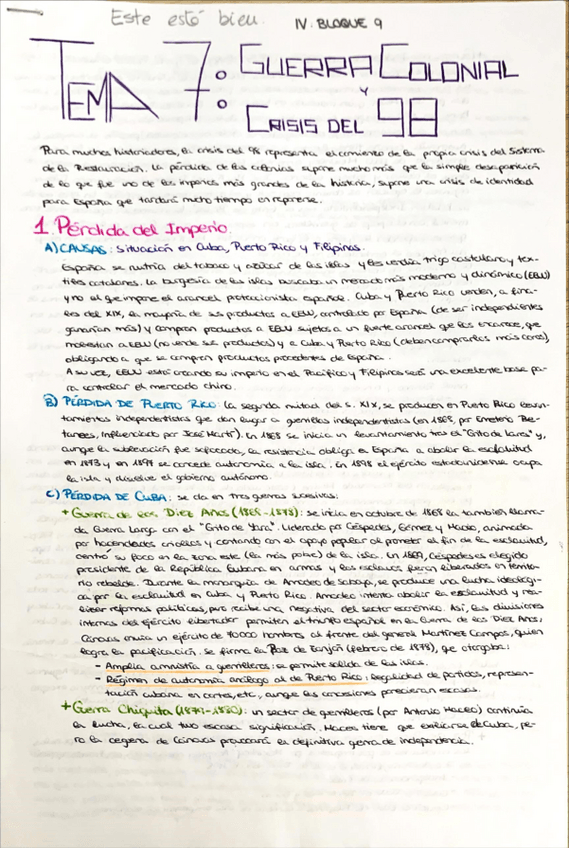 Este está bien.
IV. BLOQUE 9
TEMA 7: GUERRA COLONIAL
Y
CRISIS DEL 98
Para muchos historiadores, la crisis del 98 representa el comienzo de la propia crisis del Sistema
de la Restauración. La pérdida de las colonias supone mucho más que la simple desaparición
de lo que fue uno de los imperios más grandes de la historia, supone una crisis de identidad
para España que tardará mucho tiempo en reponerse.
1. Pérdida del Imperio
A) CAUSAS: Situación en Cuba, Puerto Rico y Filipinas.
España se nutría del tabaco y azúcar de las islas y les vendía trigo castellano y tex-
tiles catalanes. La burguesía de las islas buscaba un mercado más moderno y dinámico (EEUU)
y no el que impone el arancel proteccionista español. Cuba y Puerto Rico venden, a fina-
les del XIX, la mayoría de sus productos a EEUU, controlado por España (de ser independientes
ganarían más) y compran productos a EEUU sujetos a un fuerte arancel que los encarece, que
molestan a EEUU (no vende sus productos) y a Cuba y Puerto Rico (deben comprarlos más caros)
obligando a que se compren productos procedentes de España.
A su vez, EEUU está creando su imperio en el Pacífico y Filipinas será una excelente base pa-
ra controlar el mercado chino.
B) PÉRDIDA DE PUERTO RICO: la segunda mitad del s. XIX, se producen en Puerto Rico levan-
tamientos independentistas que dan lugar a guerrillas independentistas (en 1868, por Emeterio Be-
tances, influenciado por José Martí). En 1868 se inicia un levantamiento tras el "Grito de Lares" y,
aunque la sublevación fue sofocada, la resistencia obliga a España a abolir la esclavitud
en 1873 y en 1897 se concede autonomía a la isla. En 1898 el ejército estadounidense ocupa
la isla y disuelve el gobierno autónomo.
C) PÉRDIDA DE CUBA: se da en tres guerras sucesivas:
+ Guerra de los Diez Años (1868-1878): se inicia en octubre de 1868 la también llama-
da Guerra Larga con el "Grito de Yara". Liderado por Céspedes, Gómez y Maceo, animada
por hacendados criollos y contando con el apoyo popular al prometer el fin de la esclavitud,
centró su foco en la zona este (la más pobre) de la isla. En 1869, Céspedes es elegido
presidente de la República Cubana en armas y los esclavos fueron liberados en territo-
rio rebelde. Durante la monarquía de Amadeo de Saboya, se produce una lucha ideológi-
ca por la esclavitud en Cuba y Puerto Rico. Amadeo intenta abolir la esclavitud y rea-
lizar reformas políticas, pero recibe una negativa del sector económico. Así, las divisiones
internas del ejército libertador permiten el triunfo español en la Guerra de los Diez Años,
Cánovas envía un ejército de 70000 hombres al frente del general Martínez Campos, quien
logra la pacificación. Se firma la Paz de Zanjón (febrero de 1878), que otorgaba:
- Amplia amnistía a guerrilleros: se permite salida de las islas.
- Régimen de autonomía análogo al de Puerto Rico: legalidad de partidos, represen-
tación cubana en cortes, etc, aunque las concesiones parecieran escasas.
+ Guerra Chiquita (1879-1880): un sector de guerrilleros (por Antonio Maceo) continúa
la lucha, la cual tuvo escasa significación. Maceo tiene que exiliarse de Cuba, pe-
ro la ceguera de Cánovas provocará la definitiva guerra de independencia.